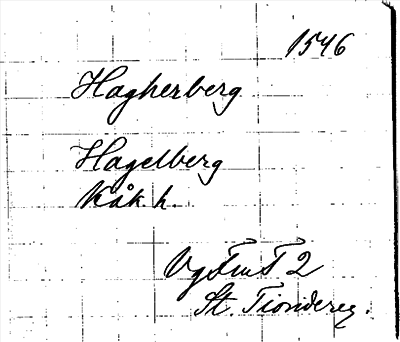 1546
Hagherberg
Hagelberg
Kåk. h.
Vg FmT 2
St. Tiondereg.